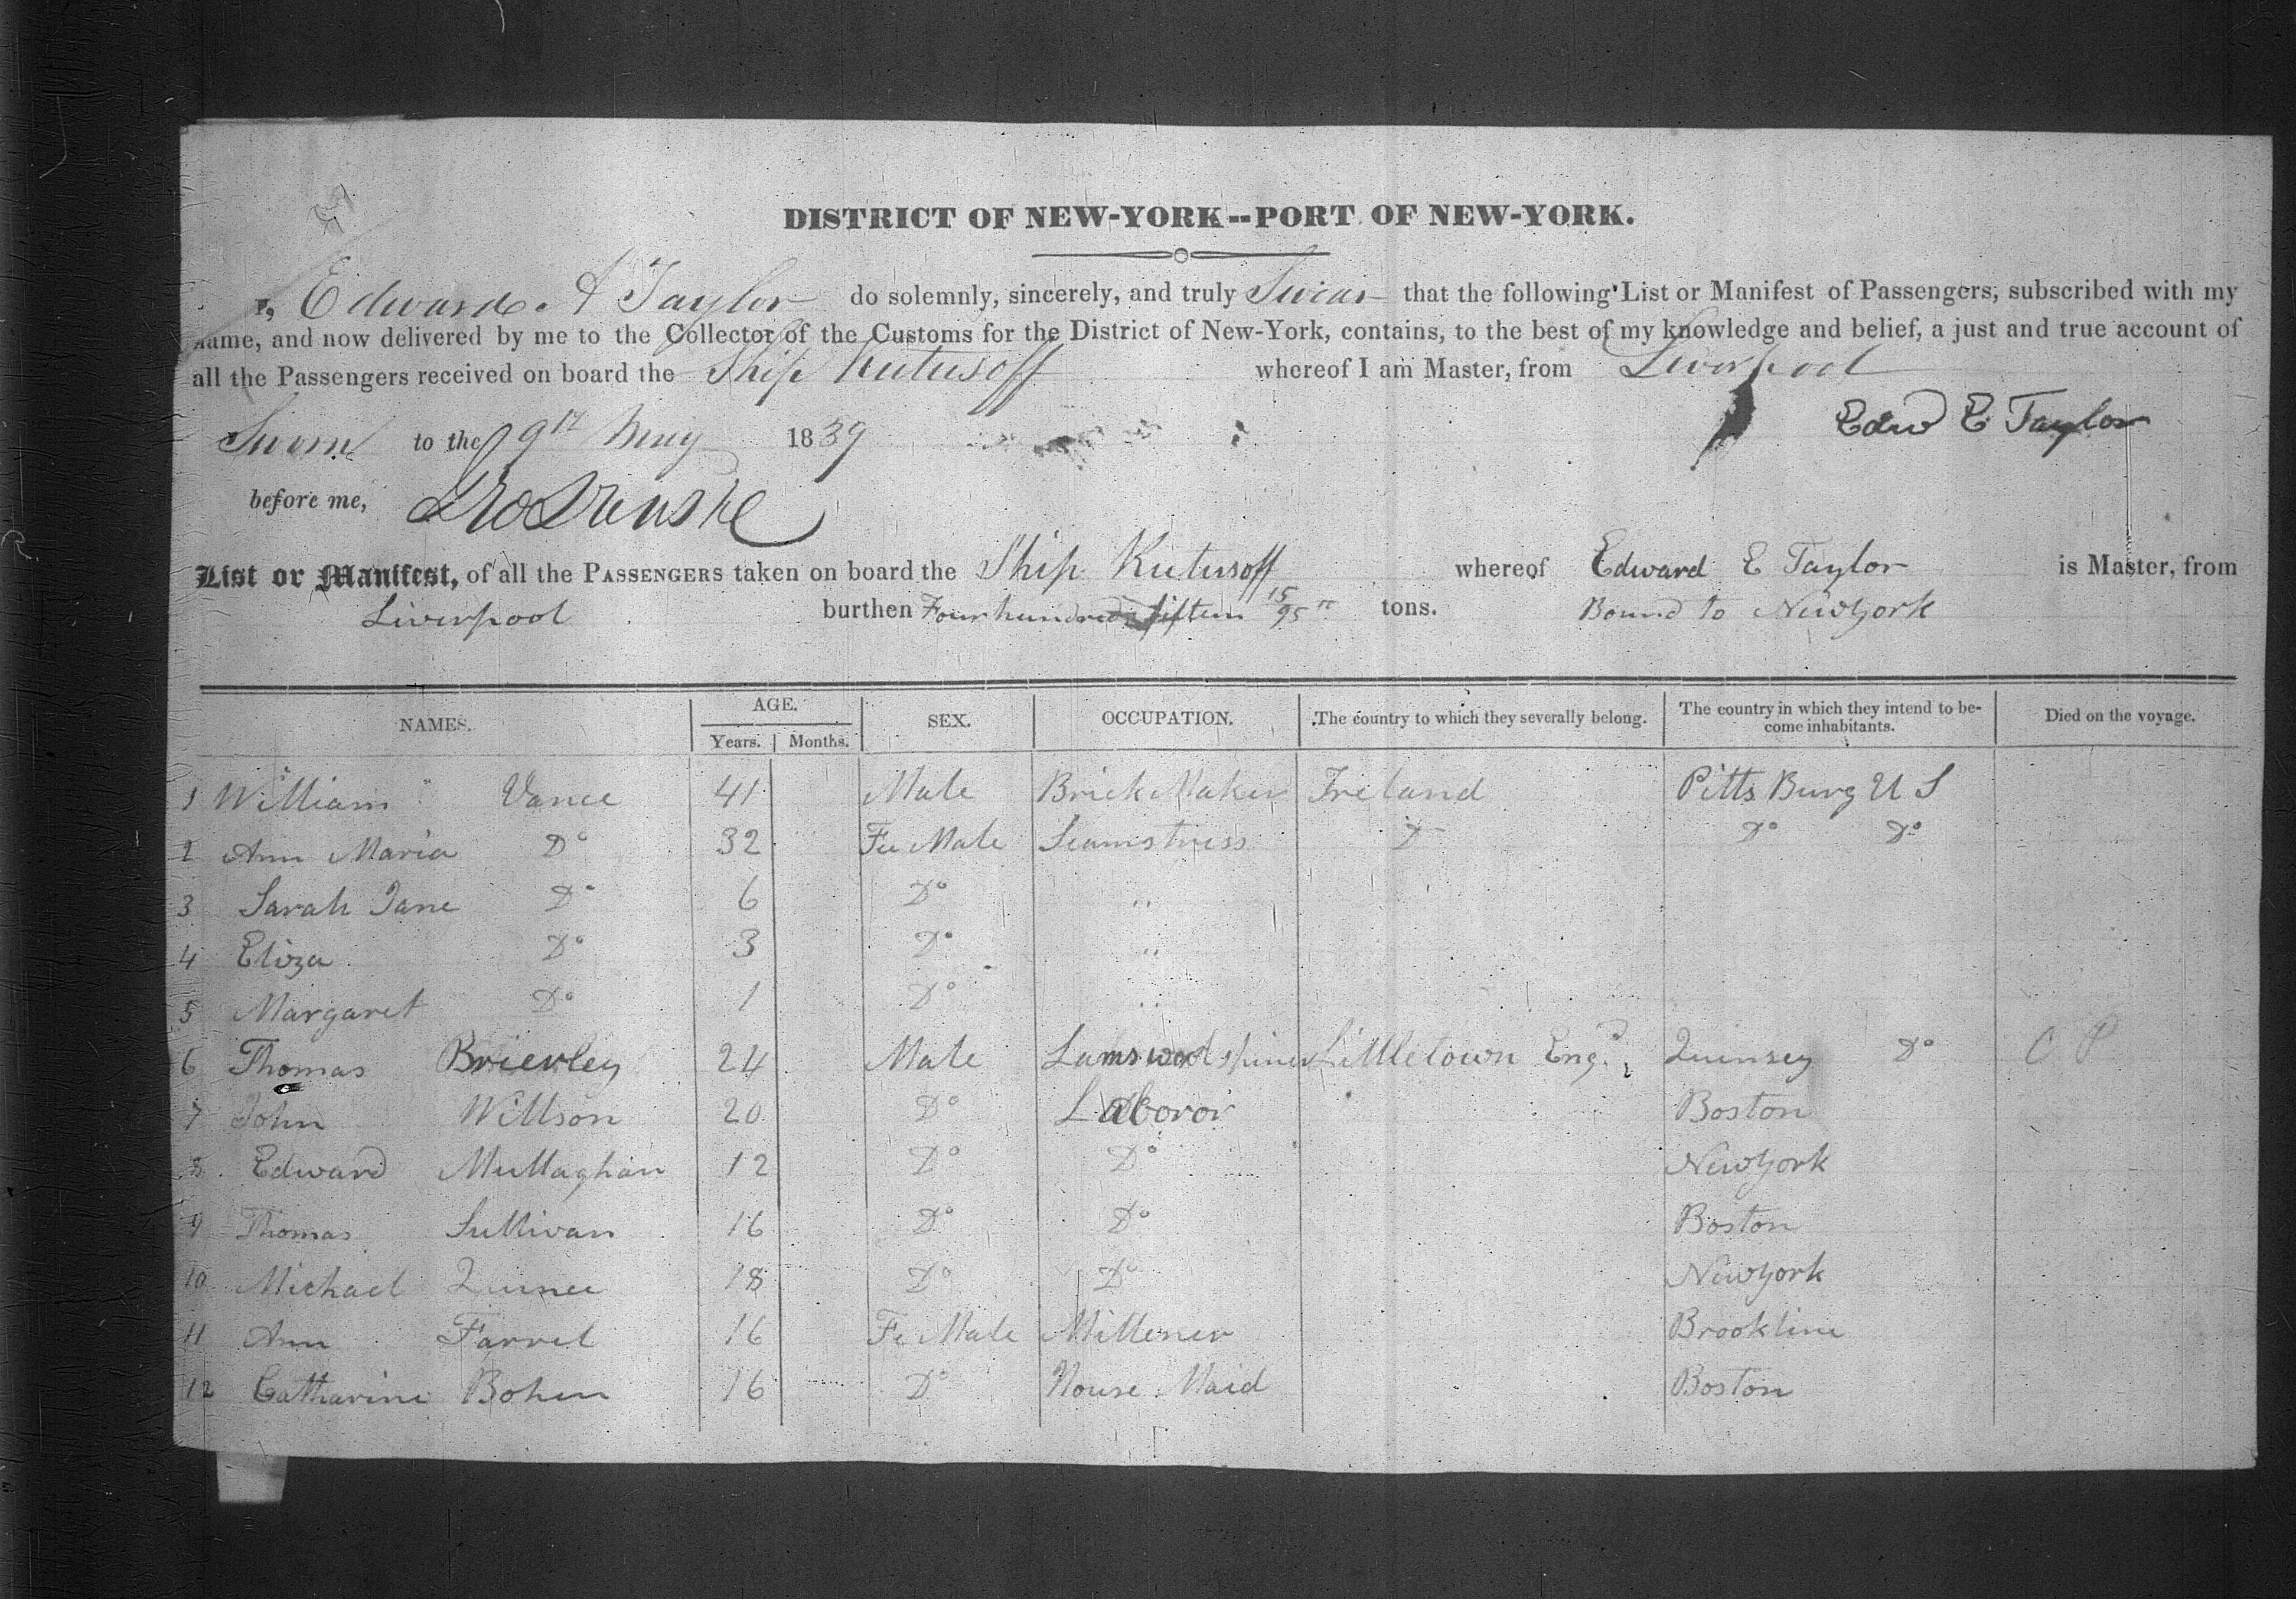 DISTRICT OF NEW-YORK--PORT OF NEW-YORK.
I, Edward A Taylor do solemnly, sincerely, and truly Swear that the following List or Manifest of Passengers, subscribed with my
name, and now delivered by me to the Collector of the Customs for the District of New-York, contains, to the best of my knowledge and belief, a just and true account of
all the Passengers received on board the Ship Kutusoff whereof I am Master, from Liverpool
Sworn to the 9th May 1839 Edwd E Taylor
before me,
List or Manifest, of all the PASSENGERS taken on board the Ship Kutusoff whereof Edward E Taylor is Master, from
Liverpool burthen Four hundred fifteen 15/95th tons. Bound to NewYork
NAMES. AGE. Years. Months. SEX. OCCUPATION. The country to which they severally belong. The country in which they intend to become inhabitants. Died on the voyage.
1 William " Vance 41 Male Brick Maker Ireland Pitts Burg U S
2 Ann Maria Do 32 Fe Male Seamstress D Do Do
3 Sarah Jane Do 6 Do "
4 Eliza Do 3 Do "
5 Margaret Do 1 Do "
6 Thomas Brierley 24 Male Lamswool spiner Littletown Engd. Quinsey Do C P
7 John Willson 20 Do Laboror Boston
8 Edward Mullaghan 12 Do Do NewYork
9 Thomas Sullivan 16 Do Do Boston
10 Michael Quinee 18 Do Do NewYork
11 Ann Farrel 16 Fe Male Millener Brookline
12 Catharine Bohen 16 Do House Maid Boston